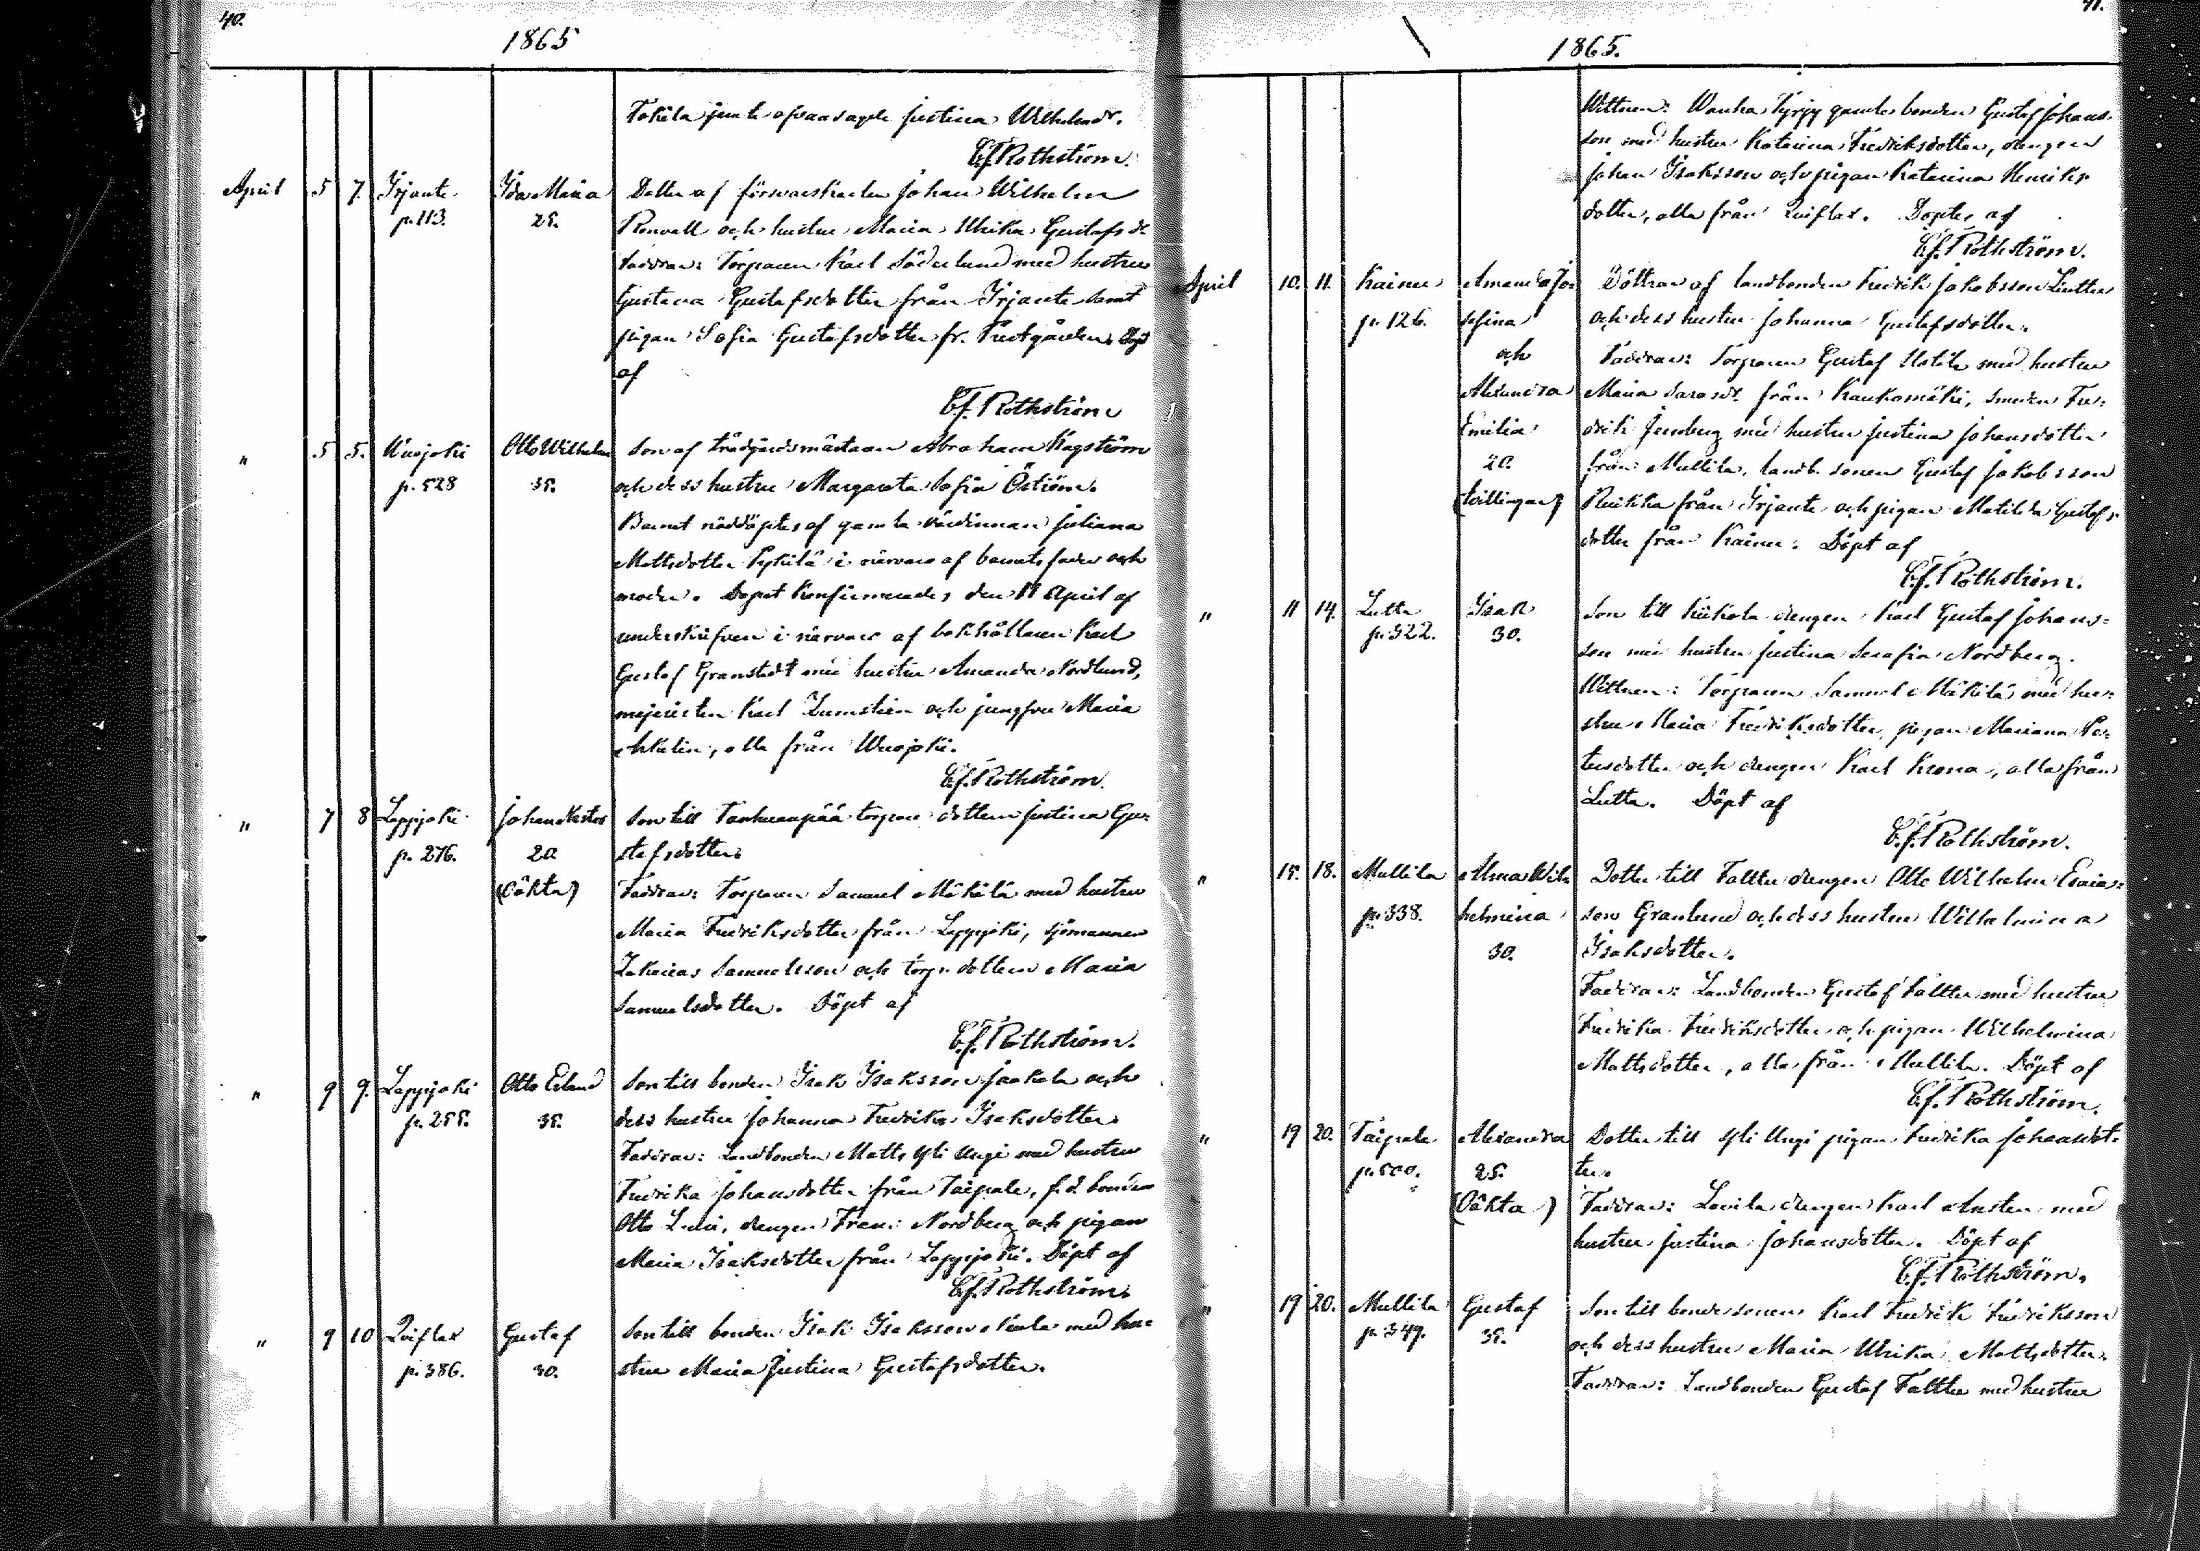 40.
1865
Tokila jemte ofvansagde Justina Wilhelmsdr.
C.J. Rothström.
April 5 7. Irjante Ida Maria Dotter af försvarskarlen Johan Wilhelm
p. 113. 25. Renvall och hustru Maria Ulrika Gustafs dr
Faddrar: Torparen Karl Söderlund med hustru
Gustava Gustafsdotter från Irjante samt
pigan Sofia Gustafsdotter fr. Prestgården. Döpt
af
C.J. Rothström
" 5 5. Wuojoki Otto Wilhelm Son af trädgårdsmästaren Abraham Hagström
p. 528 35. och dess hustru Margareta Sofia Öström.
Barnet nöddöptes af gamla värdinnan Juliana
Mattsdotter Pykilä i närvaro af barnets fader och
moder. Dopet konfirmerades den 11 April af
underskrifven i närvaro af bokhållaren Karl
Gustaf Granstedt med hustru Amanda Nordlund,
mejeristen Karl Zumstein och jungfru Maria
, alla från Wuojoki.
C.J. Rothström.
" 7 8 Lappjoki Johan Nestor Son till Tanhuanpää torpare dottern Justina Gu-
p. 276. 20 stafsdotter.
(Oäkta) Faddrar: Torparen Samuel Mäkilä med hustru
Maria Fredriksdotter från Lappjoki, sjömannen
Zakarias Samuelsson och torp. dottern Maria
Samuelsdotter. Döpt af
C.J. Rothström.
" 9 9. Lappjoki Otto Erland Son till bonden Isak Isaksson Jaakola och
p. 255. 35. dess hustru Johanna Fredrika Isaksdotter.
Faddrar: Landbonden Matts Yli Ungi med hustru
Fredrika Johansdotter från Taipale, f.d. bonden
Otto , drengen Frans Nordberg och pigan
Maria Isaksdotter från Lappjoki. Döpt af
C.J. Rothström.
" 9 10 Qviflax Gustaf Son till bonden Isak Isaksson med hu-
p. 386. 30. stru Maria Justina Gustafsdotter.
41.
1865.
Wittnen: Wanha Pyrpy gamle bonden Gustaf Johans-
son med hustru Katarina Fredriksdotter, drengen
Johan Isaksson och pigan Katarina Henriks
dotter, alla från Qviflax. Döptes af
C.J. Rothström.
April 10. 11. Kainu Amanda Jo- Döttrar af landbonden Fredrik Jakobsson
p. 126. sefina och dess hustru Johanna Gustafsdotter.
och Faddrar: Torparen Gustaf med hustru
Alexandra Maria Saras dr från Kaukomäki, smeden Fre-
Emilia drik med hustru Justina Johansdotter
20. från Mullila, landb. sonen Gustaf Jakobsson
(tvillingar) från Irjante och pigan Matilda Gustafs-
dotter från Kainu. Döpt af
C.J. Rothström.
" 11 14. Lutta Isak Son till drengen Karl Gustaf Johans-
p. 322. 30. son med hustru Justina Serafia Nordberg.
Wittnen: Torparen Samuel Mäkilä med hu-
stru Maria Fredriksdotter, pigan Mariana Pe-
tersdotter och drengen Karl Krona, alla från
Lutta. Döpt af
C.J. Rothström.
" 15. 18. Mullila Alma Wil- Dotter till Falttu drengen Otto Wilhelm Esaias-
p. 338. helmina son Granlund och dess hustru Wilhelmina
30. Isaksdotter.
Faddrar: Landbonden Gustaf Falttu med hustru
Fredrika Fredriksdotter och pigan Wilhelmina
Mattsdotter, alla från Mullila. Döpt af
C.J. Rothström.
" 19 20. Taipale Alexandra Dotter till Yli Ungi pigan Fredrika Johansdot-
p. 500. 25. ter.
(Oäkta) Faddrar: drengen Karl med
hustru Justina Johansdotter. Döpt af
C.J. Rothström.
" 19 20. Mullila Gustaf Son till bonde sonen Karl Fredrik Fredriksson
p. 349. 35. och dess hustru Maria Ulrika Mattsdotter.
Faddrar: Landbonden Gustaf Falttu med hustru